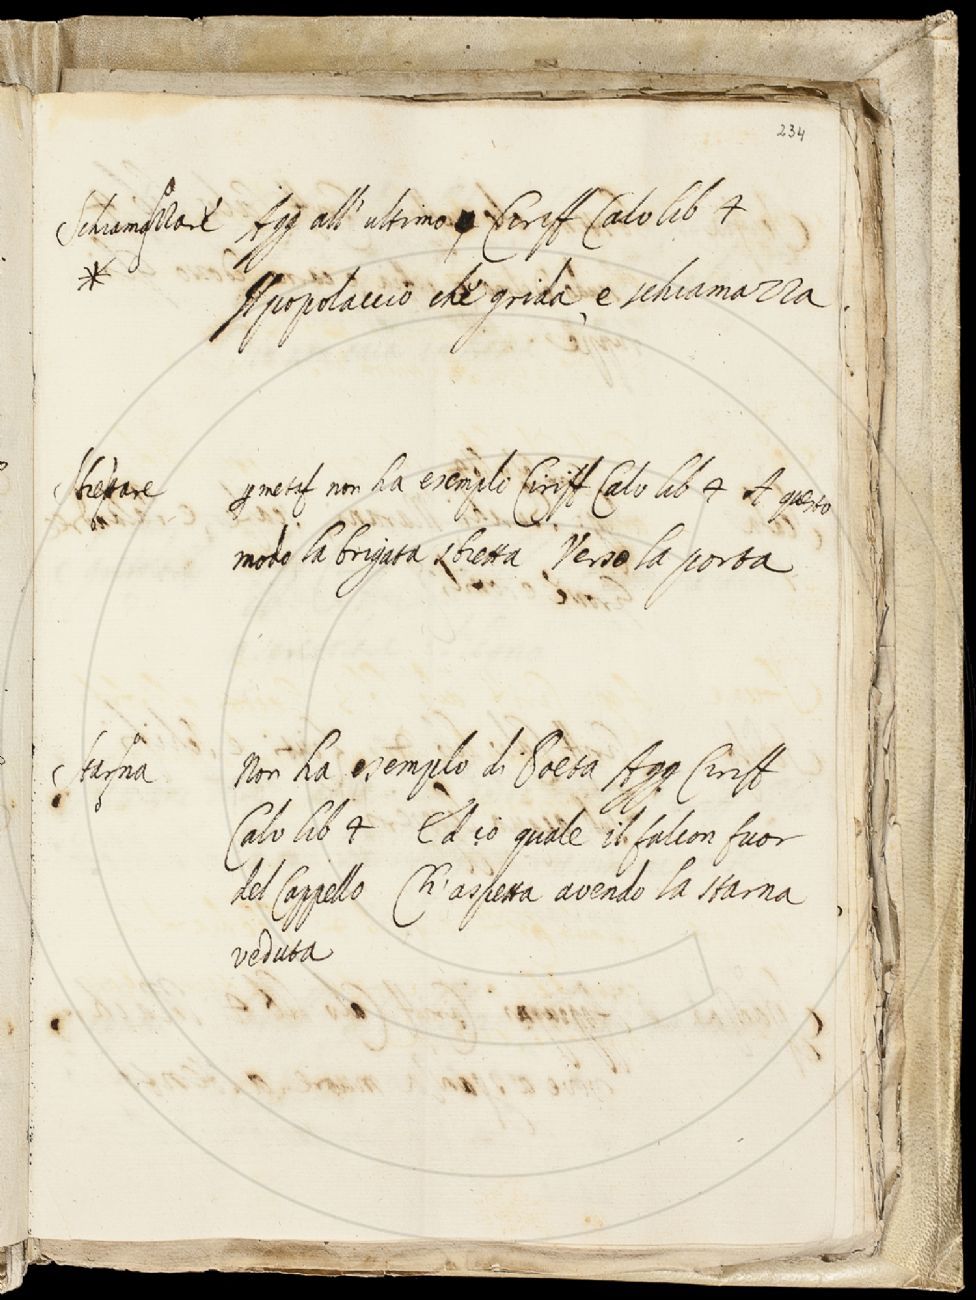 234
Schiamazzare Agg all' ultimo Ciriff Calv lib 4
* Il popolaccio che grida, e schiamazza
Sbiettare p metaf non ha esemplo Ciriff Calv lib 4 A questo
modo la brigata sbietta Verso la porta
Starna Non ha esemplo di Poeta Agg Ciriff
Calv lib 4 Ed io quale il falcon fuor
del Cappello Ch' aspetta avendo la starna
veduta